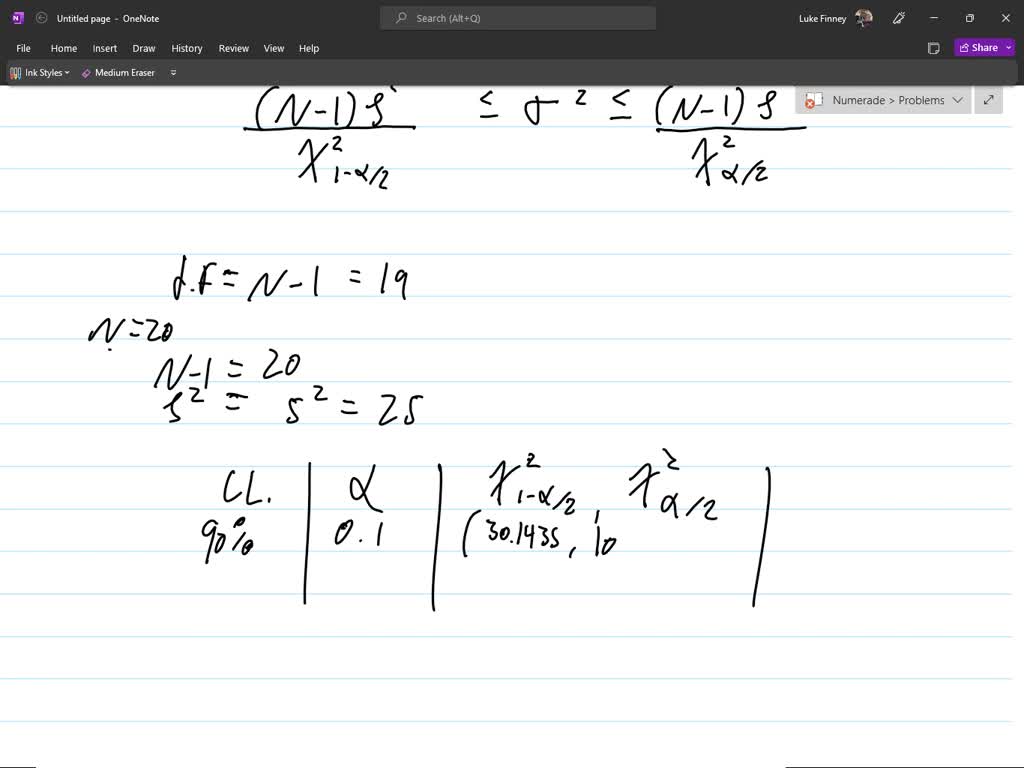 Untitled page - OneNote
Search (Alt+Q)
Luke Finney
File Home Insert Draw History Review View Help
Share
Ink Styles Medium Eraser
Numerade > Problems
(N-1) S ≤ σ² ≤ (N-1) S
χ²₁₋α/₂ χ²α/₂
d.F = N-1 = 19
N=20
N-1 = 20
s² = s² = 25
CL. | α | χ²₁₋α/₂, χ²α/₂ |
90% | 0.1 | (30.1435, 10